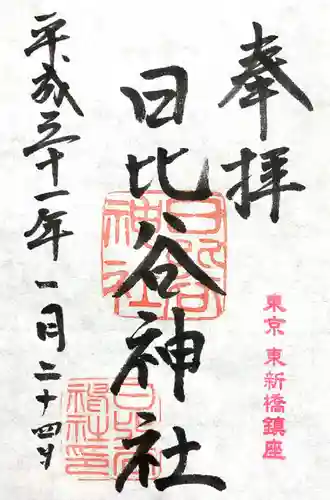 奉拝
東京 東新橋鎮座
日比谷神社
平成三十一年一月二十四日
日比谷神社